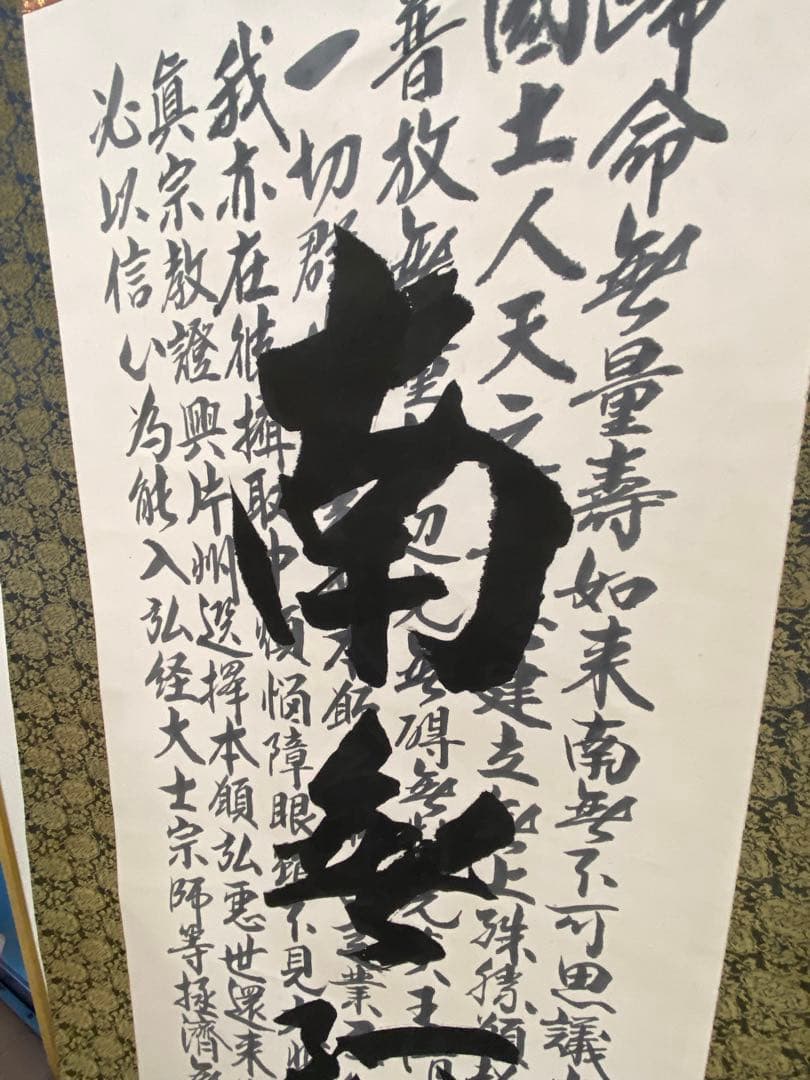 命無量壽如来南無不可思議
國土人天之建立無上殊勝願
普放無量辺光無碍無對光炎王
一切群本願業
我亦在彼攝取中煩悩障眼雖不見大
眞宗教證興片州選擇本願弘悪世還来
必以信心為能入弘経大士宗師等拯濟無
南無